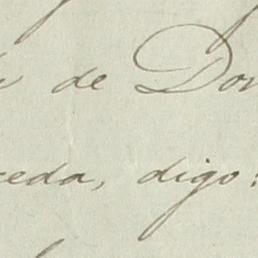 de Don
ceda, digo: